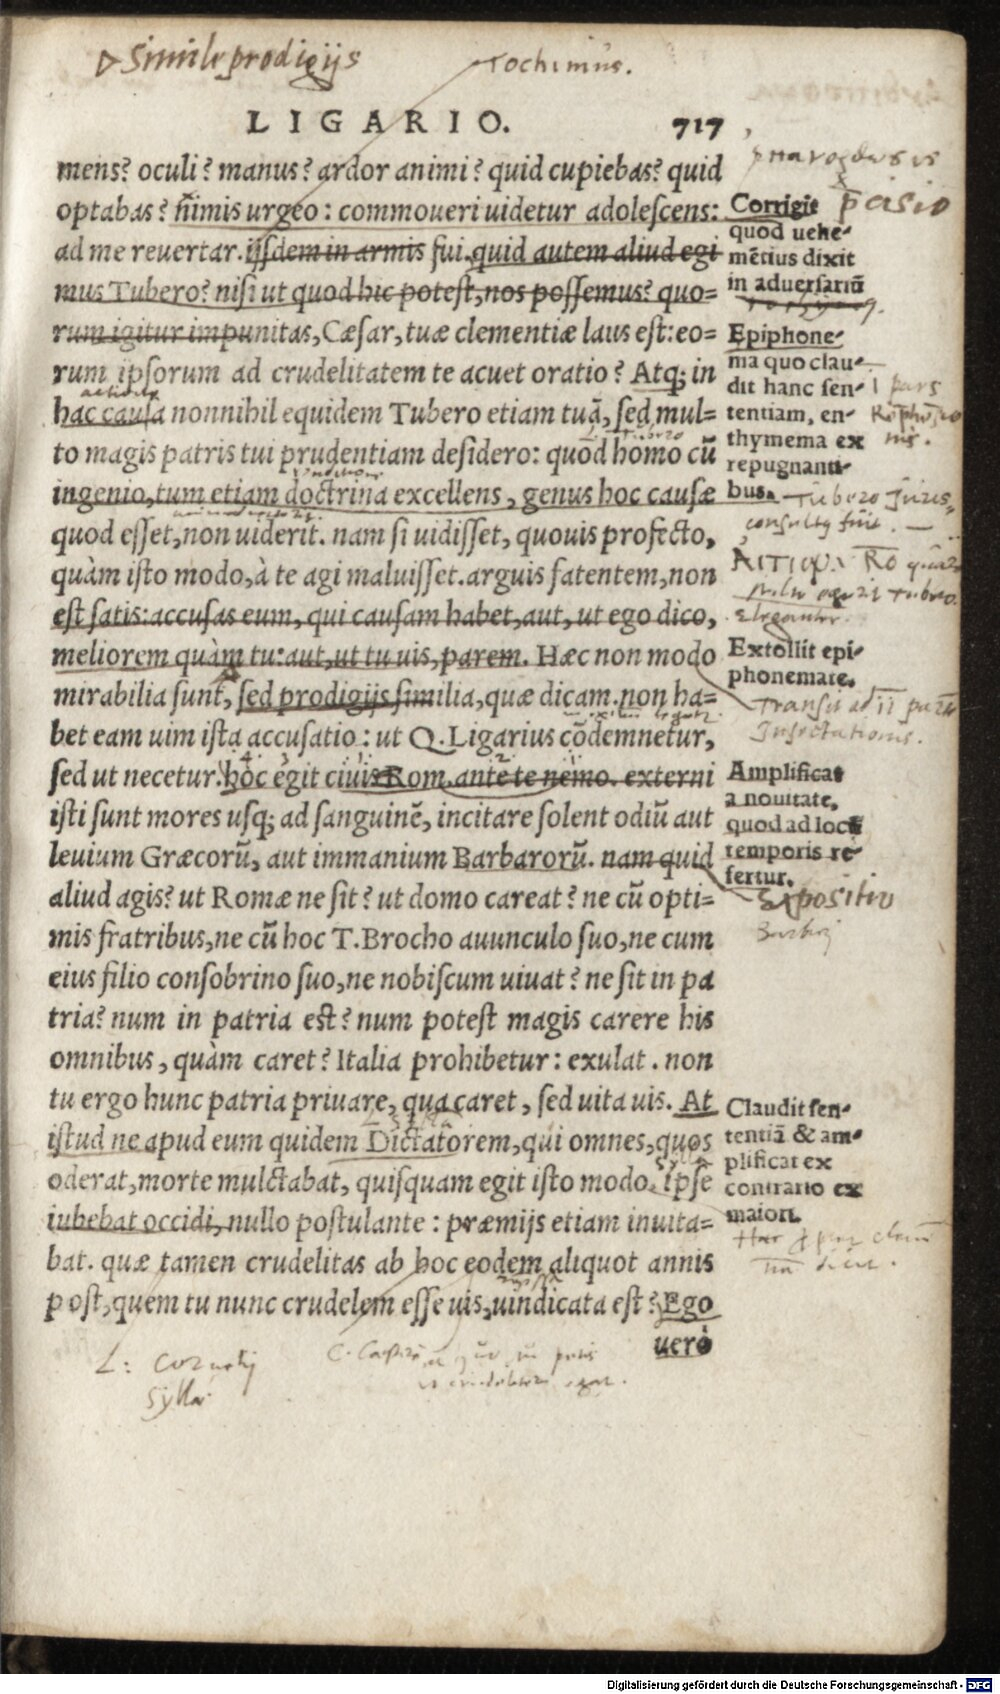 Simile prodigijs
LIGARIO. 717
mens? oculi? manus? ardor animi? quid cupiebas? quid
optabas? nimis urgeo: commoueri uidetur adolescens:
ad me reuertar. ijsdem in armis fui. quid autem aliud egi
mus Tubero? nisi ut quod hic potest, nos possemus? quo=
rum igitur impunitas, Cæsar, tuæ clementiæ laus est: eo=
rum ipsorum ad crudelitatem te acuet oratio? Atq; in
hac causa nonnihil equidem Tubero etiam tuā, sed mul=
to magis patris tui prudentiam desidero: quod homo cū
ingenio, tum etiam doctrina excellens, genus hoc causæ
quod esset, non uiderit. nam si uidisset, quouis profecto,
quàm isto modo, à te agi maluisset. arguis fatentem, non
est satis: accusas eum, qui causam habet, aut, ut ego dico,
meliorem quàm tu: aut, ut tu uis, parem. Hæc non modo
mirabilia sunt, sed prodigijs similia, quæ dicam. non ha=
bet eam uim ista accusatio: ut Q. Ligarius cōdemnetur,
sed ut necetur. hoc egit ciuis Rom. ante te nemo. externi
isti sunt mores usq; ad sanguinē, incitare solent odiū aut
leuium Græcorū, aut immanium Barbarorū. nam quid
aliud agis? ut Romæ ne sit? ut domo careat? ne cū opti=
mis fratribus, ne cū hoc T. Brocho auunculo suo, ne cum
eius filio consobrino suo, ne nobiscum uiuat? ne sit in pa
tria? num in patria est? num potest magis carere his
omnibus, quàm caret? Italia prohibetur: exulat. non
tu ergo hunc patria priuare, qua caret, sed uita uis. At
istud ne apud eum quidem Dictatorem, qui omnes, quos
oderat, morte mulctabat, quisquam egit isto modo. ipse
iubebat occidi, nullo postulante: præmijs etiam inuita=
bat. quæ tamen crudelitas ab hoc eodem aliquot annis
post, quem tu nunc crudelem esse uis, uindicata est? Ego
uerò
Corrigit
quod uehe-
mētius dixit
in aduersariū
Epiphone-
ma quo clau-
dit hanc sen-
tentiam, en-
thymema ex
repugnanti-
bus.
Tubero Juris
consultus fuit.
Extollit epi-
phonemate.
Transit ad II
Amplificat
a nouitate,
quod ad locū
temporis re-
fertur.
Expositio
Claudit sen-
tentiā & am-
plificat ex
contrario ex
maiori.
L: Cornelij
Sylla
Digitalisierung gefördert durch die Deutsche Forschungsgemeinschaft - DFG